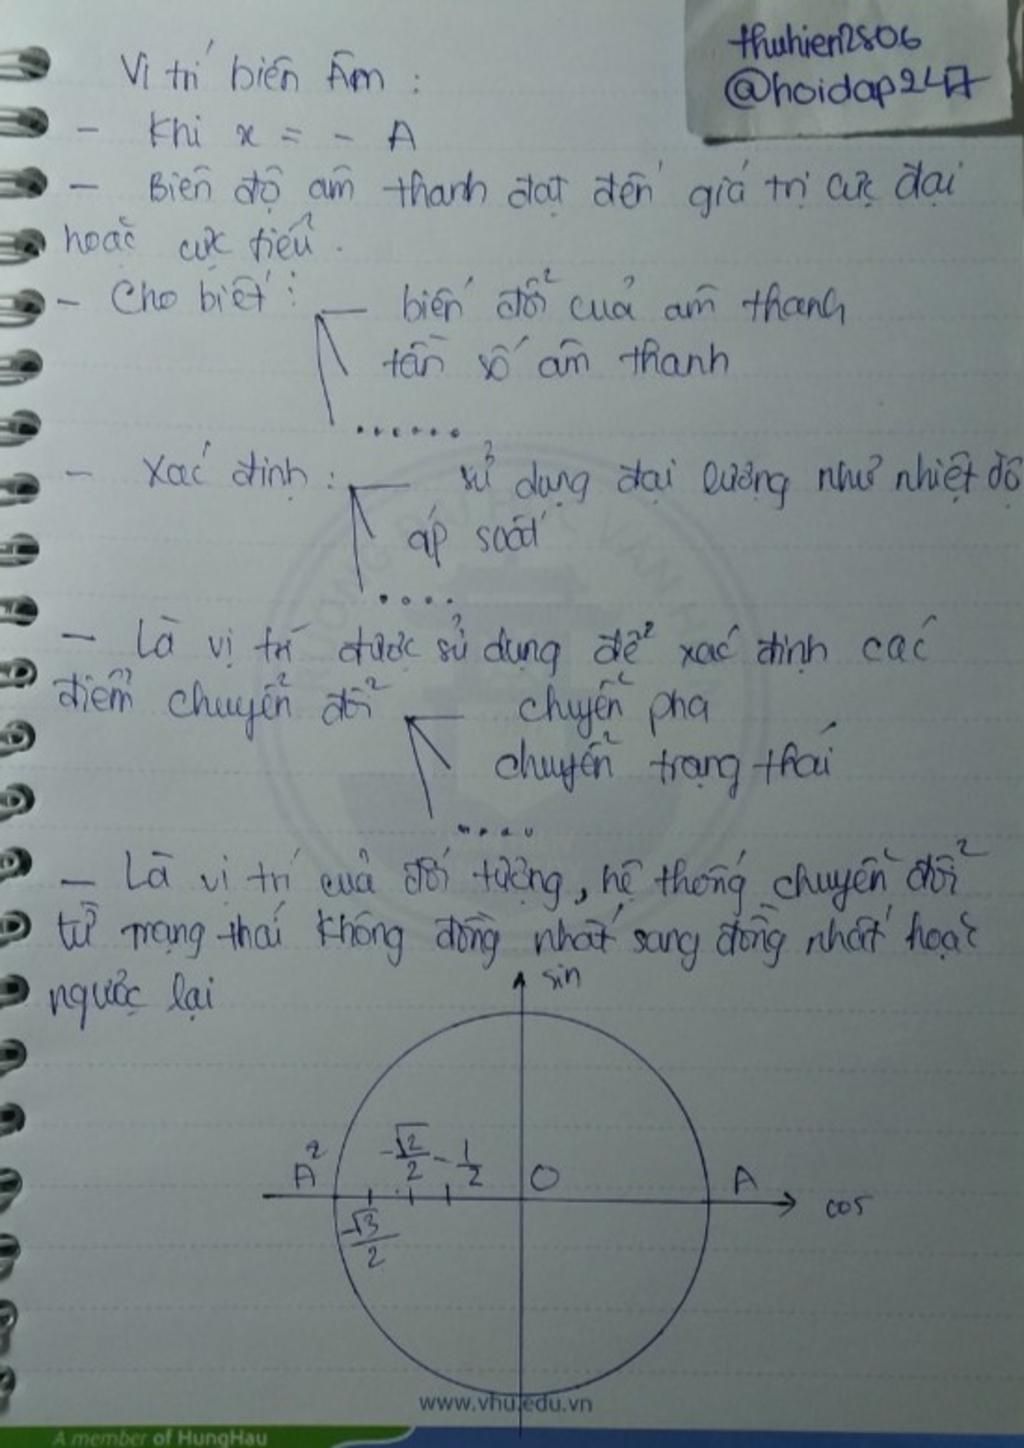 thuhien2806
@hoidap247
Vị trí biên Âm :
- Khi x = - A
- Biên độ âm thanh đạt đến giá trị cực đại
hoặc cực tiểu.
- Cho biết : - biến đổi của âm thanh
tần số âm thanh
......
- Xác định : - sử dụng đại lượng như nhiệt độ
áp suất
....
- Là vị trí được sử dụng để xác định các
điểm chuyển đổi - chuyển pha
chuyển trạng thái
....
- Là vị trí của đối tượng, hệ thống chuyển đổi
từ trạng thái không đồng nhất sang đồng nhất hoặc
ngược lại
sin
-√2/2 -1/2
A² O A
cos
-√3/2
www.vhu.edu.vn
A member of HungHau